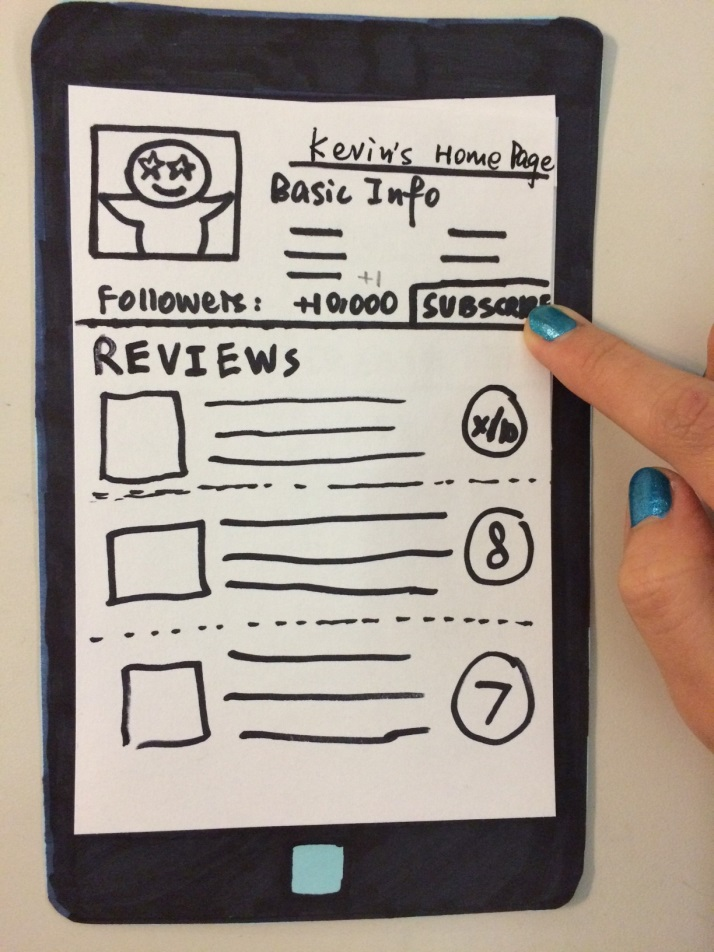 Kevin's Home Page
Basic Info
+1
Followers: +10,000 SUBSCRIBE
REVIEWS
x/10
8
7